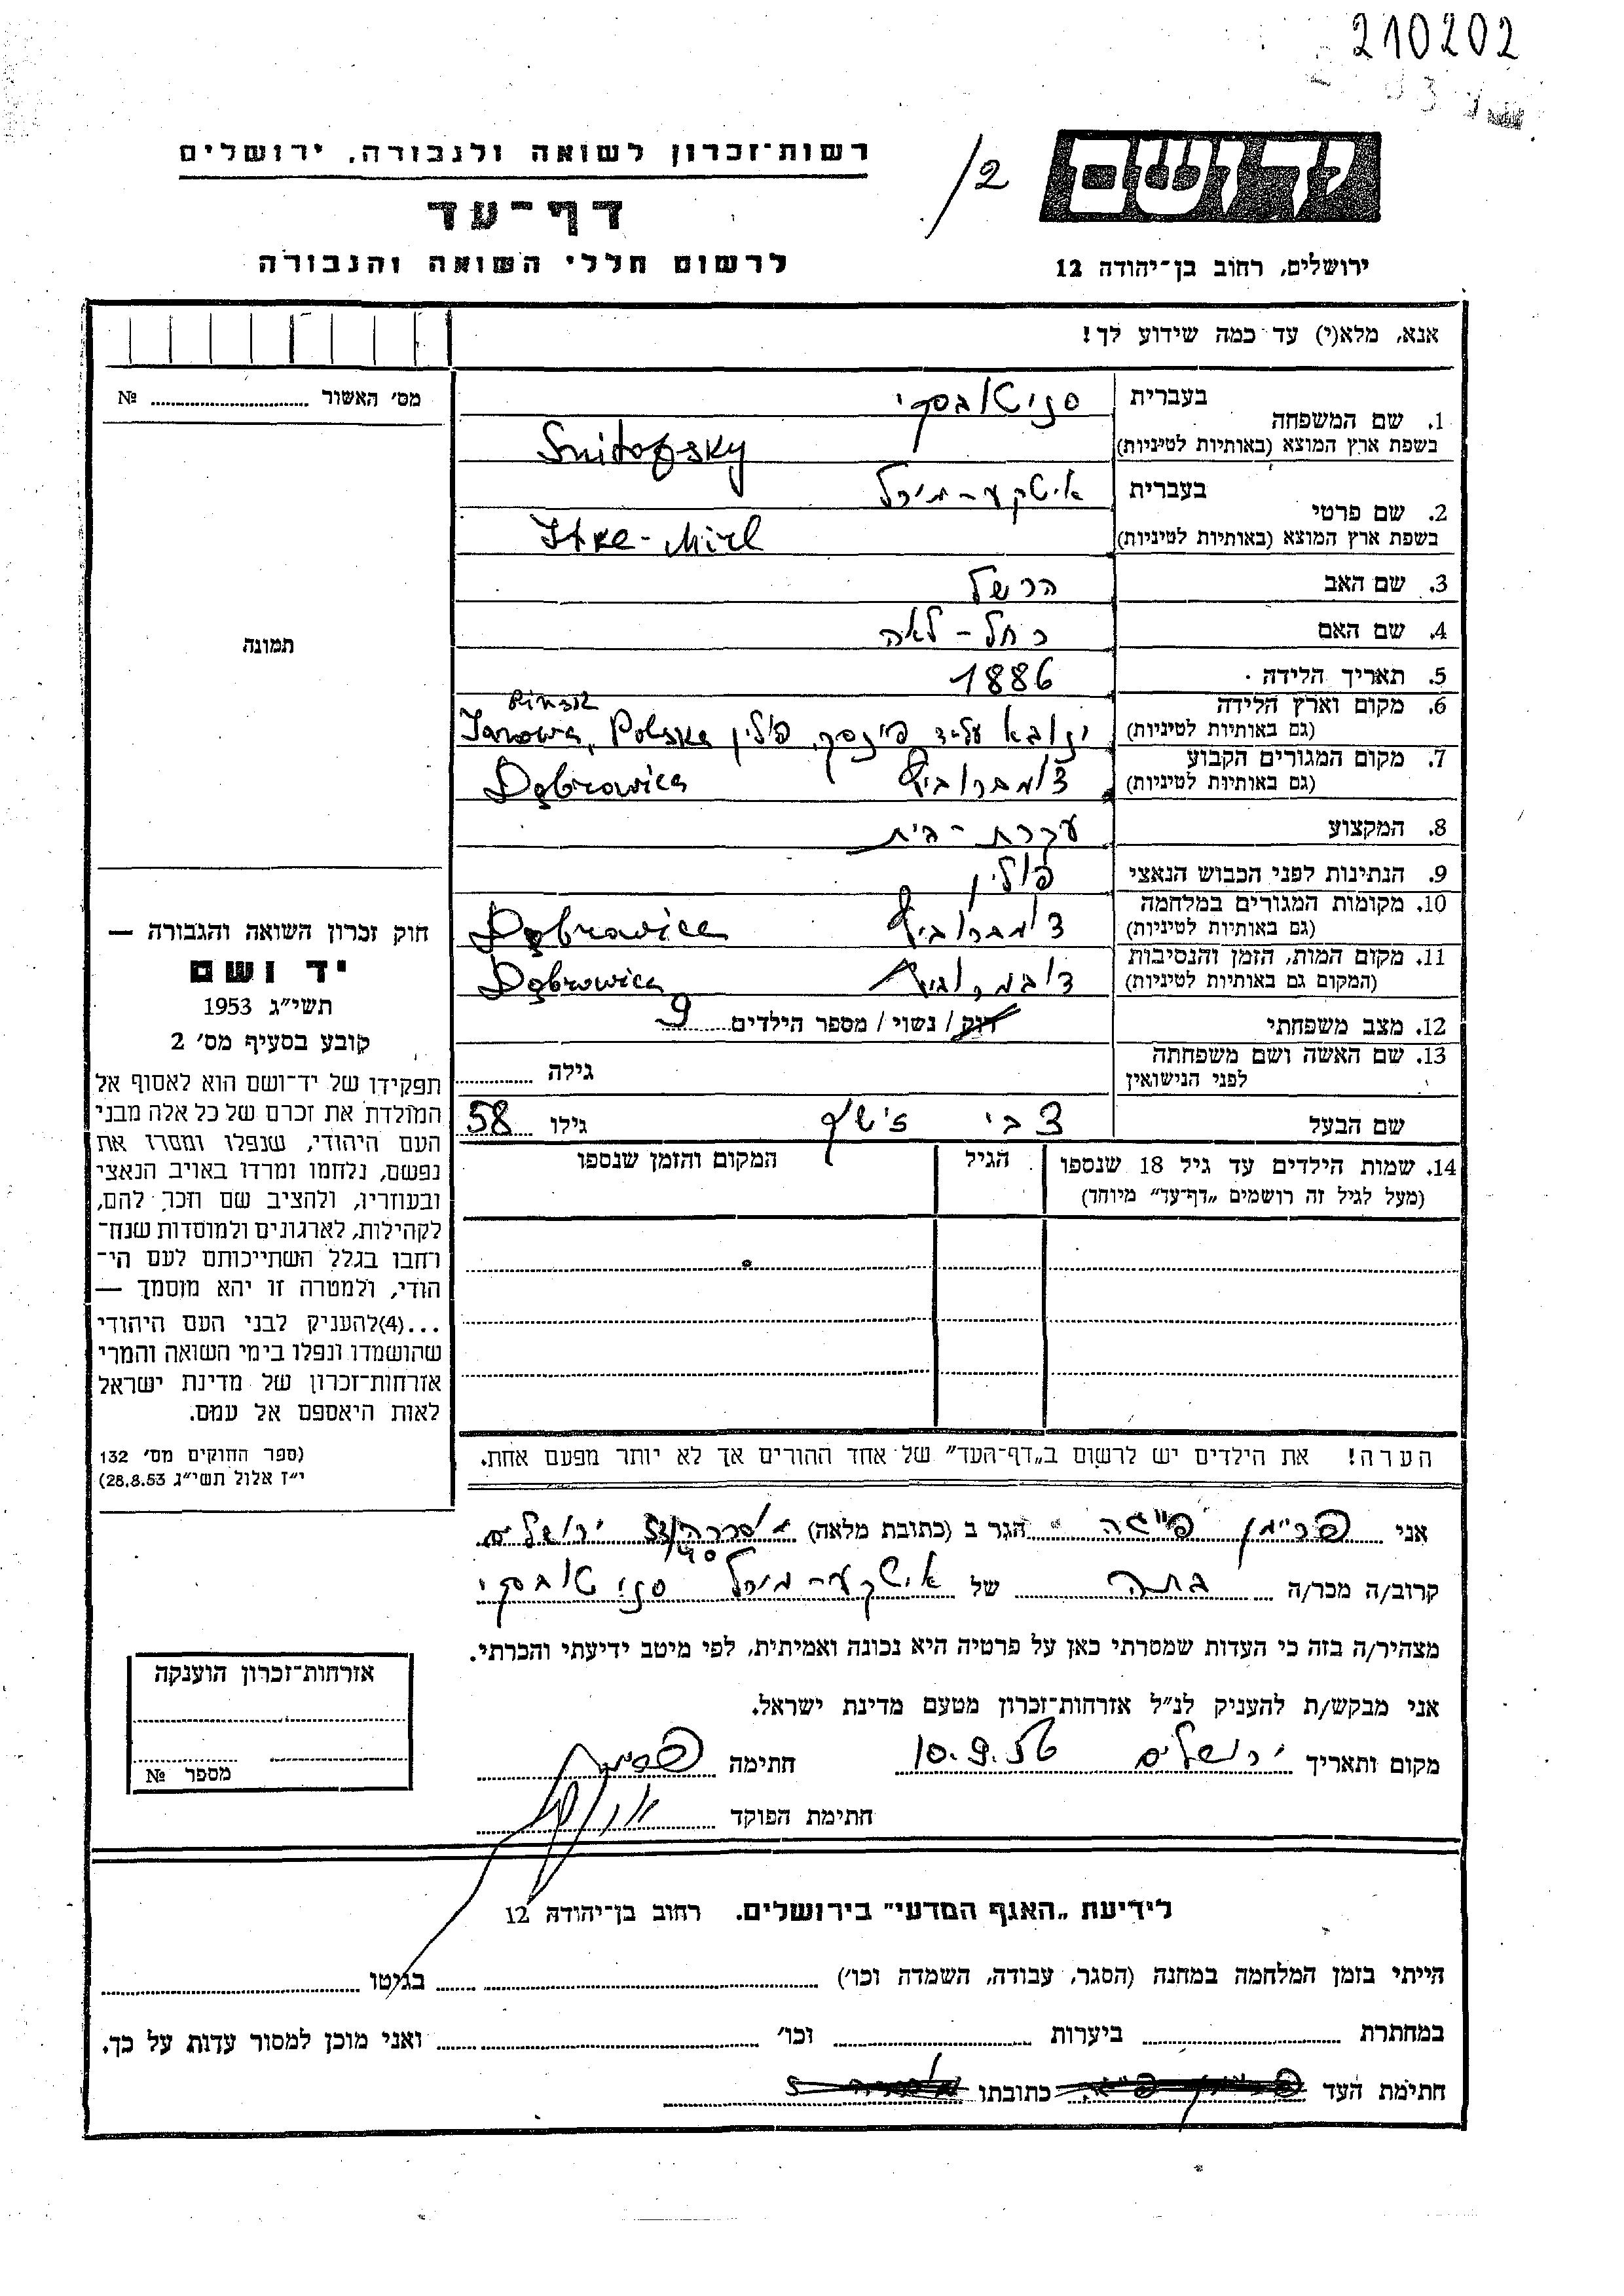 210202
ידושם
רשות־זכרון לשואה ולגבורה, ירושלים
/2
דף־עד
לרשום חללי השואה והגבורה
ירושלים, רחוב בן־יהודה 12
אנא, מלא(י) עד כמה שידוע לך!
מס׳ האשור № 
1. שם המשפחה
בעברית סניטובסקי
בשפת ארץ המוצא (באותיות לטיניות) Snitofsky
2. שם פרטי
בעברית איטקע-מירל
בשפת ארץ המוצא (באותיות לטיניות) Itke-Mirl
3. שם האב הרשל
4. שם האם רחל-לאה
תמונה
5. תאריך הלידה 1886
6. מקום וארץ הלידה
(גם באותיות לטיניות) ינובא על יד פינסק, פולין Janowa, Polska Pinsk
7. מקום המגורים הקבוע
(גם באותיות לטיניות) דומברוביץ Dąbrowica
8. המקצוע עקרת-בית
9. הנתינות לפני הכבוש הנאצי פולין
10. מקומות המגורים במלחמה
(גם באותיות לטיניות) דומברוביץ Dąbrowica
11. מקום המות, הזמן והנסיבות
(המקום גם באותיות לטיניות) דומברוביץ Dąbrowica
12. מצב משפחתי רווק / נשוי / מספר הילדים 9
13. שם האשה ושם משפחתה
לפני הנישואין גילה
שם הבעל צבי זישע גילו 58
14. שמות הילדים עד גיל 18 שנספו
(מעל לגיל זה רושמים „דף־עד״ מיוחד)
הגיל
המקום והזמן שנספו
הערה! את הילדים יש לרשום ב„דף־העד״ של אחד ההורים אך לא יותר מפעם אחת.
חוק זכרון השואה והגבורה —
יד ושם
תשי״ג 1953
קובע בסעיף מס׳ 2
תפקידו של יד־ושם הוא לאסוף אל
המולדת את זכרם של כל אלה מבני
העם היהודי, שנפלו ומסרו את
נפשם, נלחמו ומרדו באויב הנאצי
ובעוזריו, ולהציב שם וזכר להם,
לקהילות, לארגונים ולמוסדות שנח־
רחבו בגלל השתייכותם לעם הי־
הודי, ולמטרה זו יהא מוסמך —
...(4)להעניק לבני העם היהודי
שהושמדו ונפלו בימי השואה והמרי
אזרחות־זכרון של מדינת ישראל
לאות היאספם אל עמם.
(ספר החוקים מס׳ 132
י״ז אלול תשי״ג 28.8.53)
אני פריימן פייגה הגר ב (כתובת מלאה) ירושלים
קרוב/ה מכר/ה בתה של איטקע-מירל סניטובסקי
מצהיר/ה בזה כי העדות שמסרתי כאן על פרטיה היא נכונה ואמיתית, לפי מיטב ידיעתי והכרתי.
אני מבקש/ת להעניק לנ״ל אזרחות־זכרון מטעם מדינת ישראל.
מקום ותאריך ירושלים 10.9.56 חתימה
חתימת הפוקד
אזרחות־זכרון הוענקה
מספר №
לידיעת „האגף המדעי״ בירושלים. רחוב בן־יהודה 12
הייתי בזמן המלחמה במחנה (הסגר, עבודה, השמדה וכו׳) בגיטו
במחתרת ביערות וכו׳ ואני מוכן למסור עדות על כך.
חתימת העד כתובתו